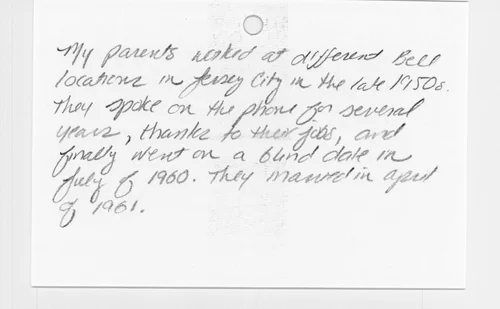 My parents worked at different Bell
locations in Jersey City in the late 1950s.
They spoke on the phone for several
years, thanks to their jobs, and
finally went on a blind date in
July of 1960. They married in april
of 1961.